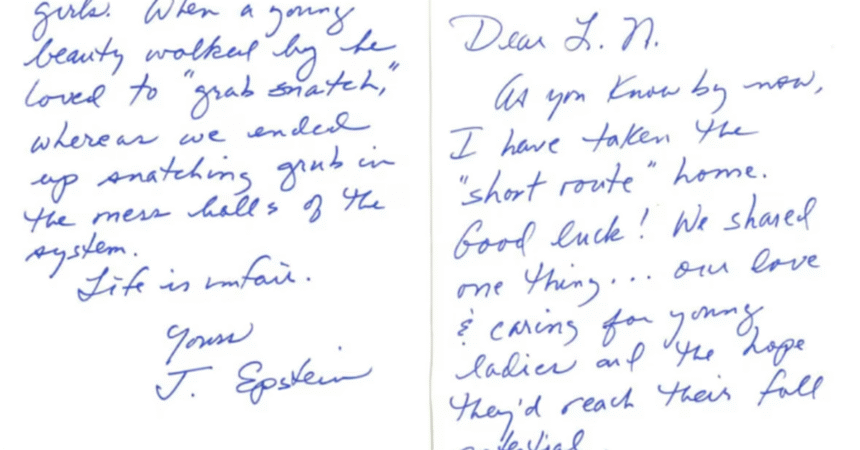 girls. When a young
beauty walked by he
loved to "grab snatch,"
whereas we ended
up snatching grub in
the mess halls of the
system.
Life is unfair.
Yours
J. Epstein
Dear L. N.
As you know by now,
I have taken the
"short route" home.
Good luck! We shared
one thing... our love
& caring for young
ladies and the hope
they'd reach their full
potential.